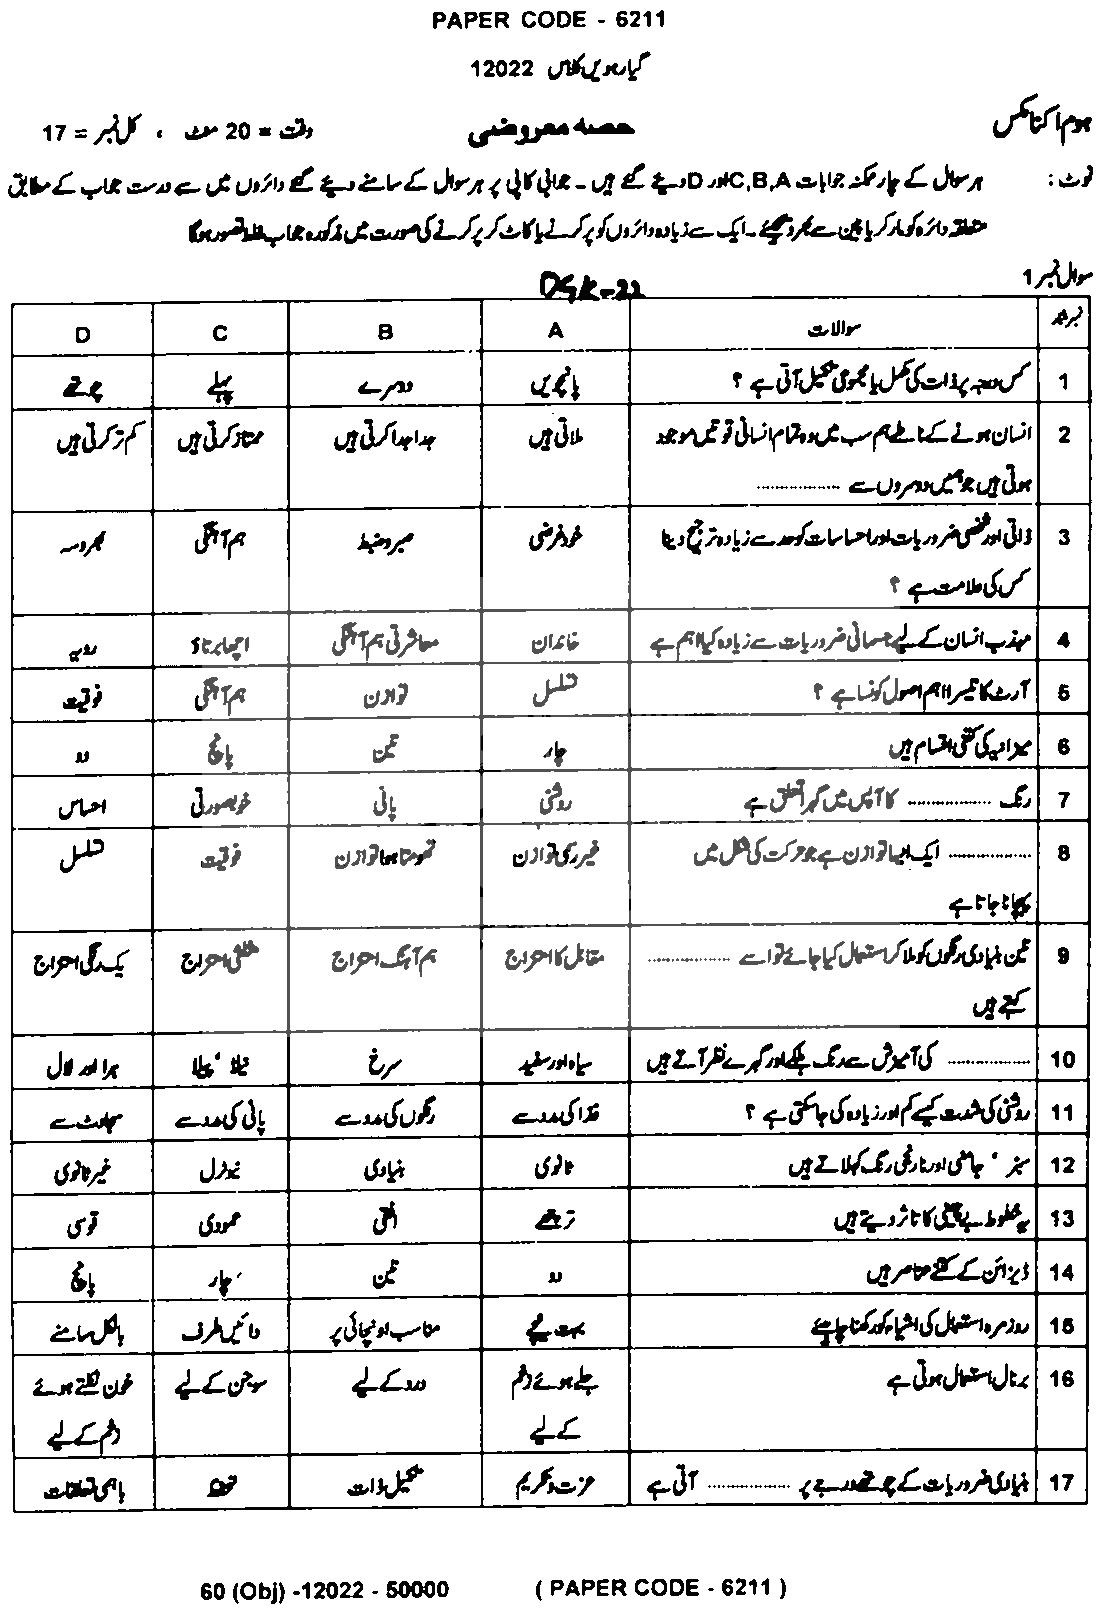 PAPER CODE - 6211
گیارہویں کلاس 12022
ہوم اکنامکس
حصہ معروضی
وقت = 20 منٹ ، کل نمبر = 17
نوٹ : ہر سوال کے چار ممکنہ جوابات C,B,A اور D دیئے گئے ہیں ۔ جوابی کاپی پر ہر سوال کے سامنے دیئے گئے دائروں میں سے درست جواب کے مطابق
متعلقہ دائرہ کو مارکر یا پین سے بھر دیجئے ۔ ایک سے زیادہ دائروں کو پُر کرنے یا کاٹ کر پُر کرنے کی صورت میں مذکورہ جواب غلط تصور ہوگا
سوال نمبر 1
DGK-22
نمبر شمار سوالات A B C D
1 کس درجہ پر ذات کی مکمل یا مجموعی تکمیل آتی ہے ؟ پانچویں دوسرے پہلے چوتھے
2 انسان ہونے کے ناطے ہم سب میں وہ تمام انسانی قوتیں موجود ملاتی ہیں جدا جدا کرتی ہیں ممتاز کرتی ہیں کم تر کرتی ہیں
ہوتی ہیں جو ہمیں دوسروں سے ................
3 ذاتی اور شخصی ضروریات اور احساسات کو حد سے زیادہ ترجیح دینا خود غرضی صبر و ضبط ہم آہنگی بھروسہ
کس کی علامت ہے ؟
4 مہذب انسان کے لیے جسمانی ضروریات سے زیادہ کیا اہم ہے خاندان معاشرتی ہم آہنگی اچھا برتاؤ رویہ
5 آرٹ کا تیسرا اہم اصول کونسا ہے ؟ تسلسل توازن ہم آہنگی فوقیت
6 میزانیہ کی کتنی اقسام ہیں چار تین پانچ دو
7 رنگ ................ کا آپس میں گہرا تعلق ہے روشنی پانی خوبصورتی احساس
8 ................ ایک ایسا توازن ہے جو حرکت کی شکل میں غیر رسمی توازن گھومتا ہوا توازن فوقیت تسلسل
پہچانا جاتا ہے
9 تین بنیادی رنگوں کو ملا کر استعمال کیا جائے تو اسے ................ مقابل کا امتزاج ہم آہنگ امتزاج مثلثی امتزاج یک رنگی امتزاج
کہتے ہیں
10 ................ کی آمیزش سے رنگ ہلکے اور گہرے نظر آتے ہیں سیاہ اور سفید سرخ نیلا ، پیلا ہرا اور لال
11 روشنی کی شدت کیسے کم اور زیادہ کی جا سکتی ہے ؟ غذا کی مدد سے رنگوں کی مدد سے پانی کی مدد سے سجاوٹ سے
12 سبز ، جامنی اور نارنجی رنگ کہلاتے ہیں ثانوی بنیادی نیوٹرل غیر ثانوی
13 یہ خطوط بے چینی کا تاثر دیتے ہیں ترچھے افقی عمودی قوسی
14 ڈیزائن کے کتنے عناصر ہیں دو تین چار پانچ
15 روزمرہ استعمال کی اشیاء کو رکھنا چاہیئے بہت نیچے مناسب اونچائی پر دائیں طرف بالکل سامنے
16 برنال استعمال ہوتی ہے جلے ہوئے زخم درد کے لیے سوجن کے لیے خون نکلتے ہوئے
کے لیے زخم کے لیے
17 بنیادی ضروریات کے چوتھے درجے پر ................ آتی ہے عزت و تکریم تکمیل ذات تحفظ باہمی تعلقات
60 (Obj) -12022 - 50000 ( PAPER CODE - 6211 )